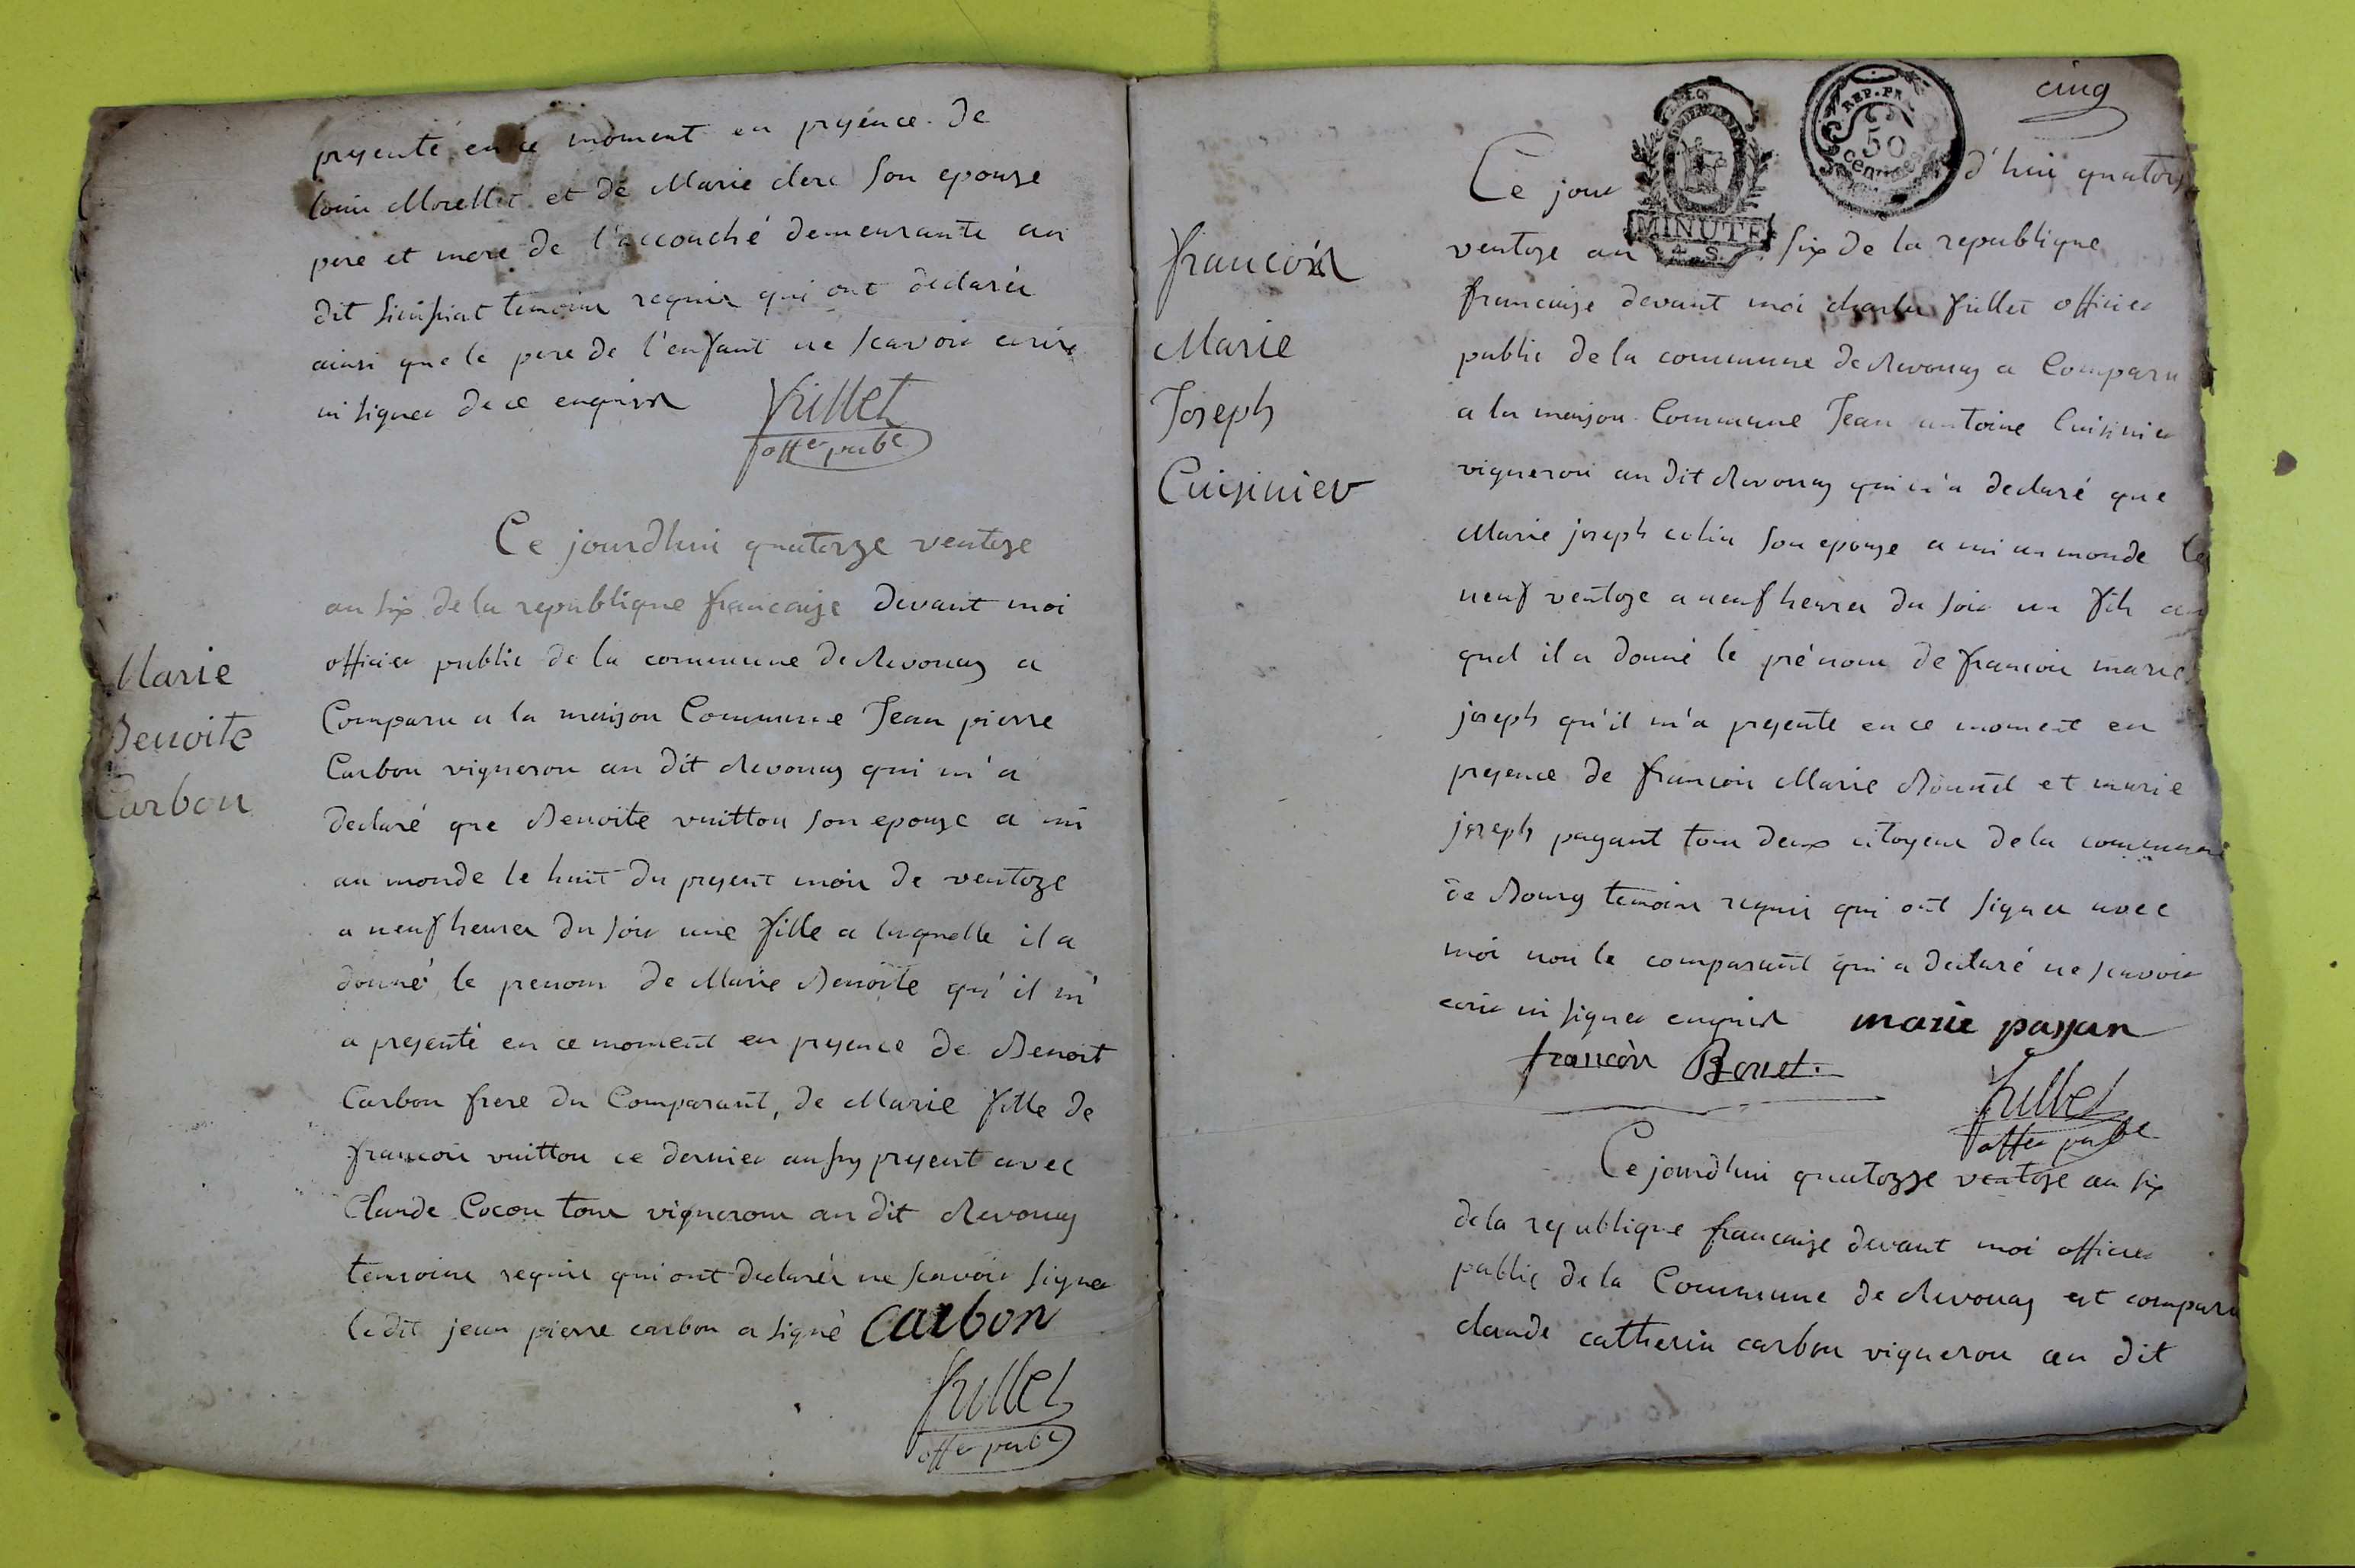 presenté en ce moment en presence de
louis Morellet et de Marie clerc son epouse
pere et mere de l'accouché demeurants au
dit temoins requis qui ont declarés
ainsi que le pere de l'enfant ne scavoir ecrire
ni signer de ce enquis
fillet
offer pubc
Marie
Benoite
Carbon
Ce jourdhui quatorze ventose
an six de la republique francaise devant moi
officier public de la commune de Revonay a
Comparu a la maison Commune Jean pierre
Carbon vigneron au dit Revonay qui m'a
declaré que Benoite vuitton son epouse a mi
au monde le huit du present mois de ventoze
a neuf heures du soir une fille a laquelle il a
donné le prenom de Marie Benoite qu'il m'
a presenté en ce moment en presence de Benoit
Carbon frere du Comparant, de Marie fille de
francois vuitton ce dernier aussy present avec
Claude Cocon tous vignerons au dit Revonay
temoins requis qui ont declarés ne scavoir signer
le dit jean pierre carbon a signé carbon
fillet
offer pubc
cinq
REP. FRA
50
centimes
MINUTE
francois
Marie
Joseph
Cuisinier
Ce jour d'hui quatorze
ventose an six de la republique
francaise devant moi charles fillet officier
public de la commune de Revonay a Comparu
a la maison Commune Jean antoine Cuisinier
vigneron au dit Revonay qui m'a declaré que
Marie joseph colin son epouse a mi au monde le
neuf ventose a neuf heures du soir un fils au
quel il a donné le prénom de francois marie
joseph qu'il m'a presenté en ce moment en
presence de francois Marie Bonnet et marie
joseph payant tous deux citoyens de la commune
de Bourg temoins requis qui ont signer avec
moi non le comparant qui a declaré ne scavoir
ecrire ni signer enquis marie payan
francois Bonet.
fillet
offer pubc
Ce jourdhui quatorze ventose an six
de la republique francaise devant moi officier
public de la Commune de Revonay est comparu
claude catherin carbon vigneron au dit